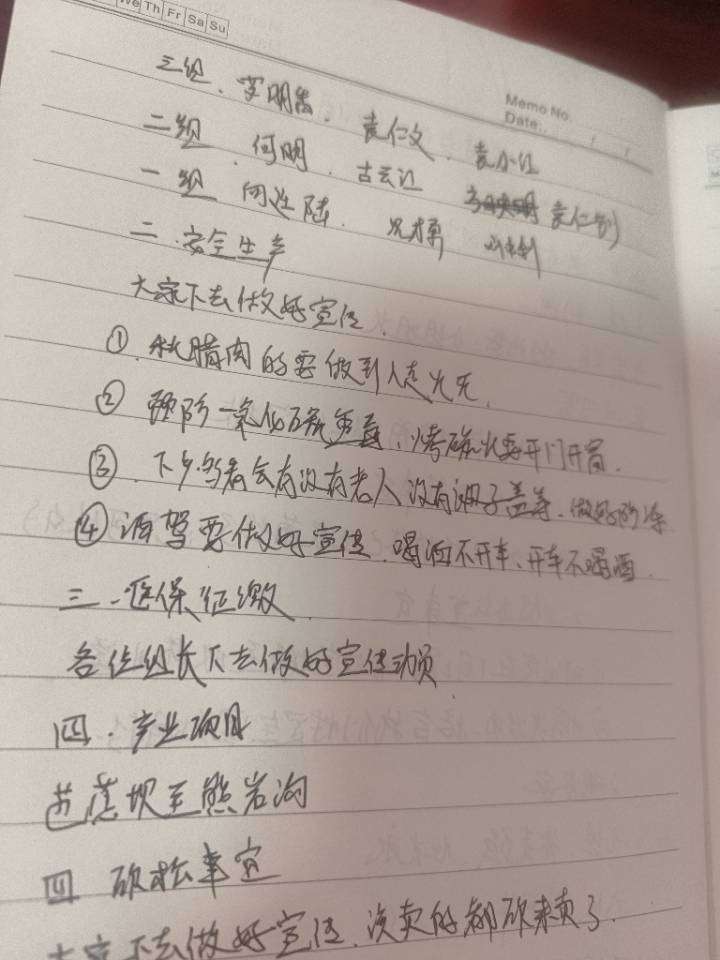 We Th Fr Sa Su
Memo No.
Date: / /
三组、李明 、袁仁文、袁小江
二组、何明、古云江 袁仁
一组 陆、
二、安全生产
大家下去做好宣传、
①、秋腊肉的要做到人走火灭、
②预防一氧化碳重毒、烤碳火要开门开窗、
③、下乡 看会有没有老人没有被子盖等、做好防冻
④酒驾要做好宣传、喝酒不开车、开车不喝酒
三、医保征缴
各位组长下去做好宣传动员
四、产业项目
芭蕉坝至熊岩沟
四 砍松事宜
大家下去做好宣传、该卖的都砍来卖了、